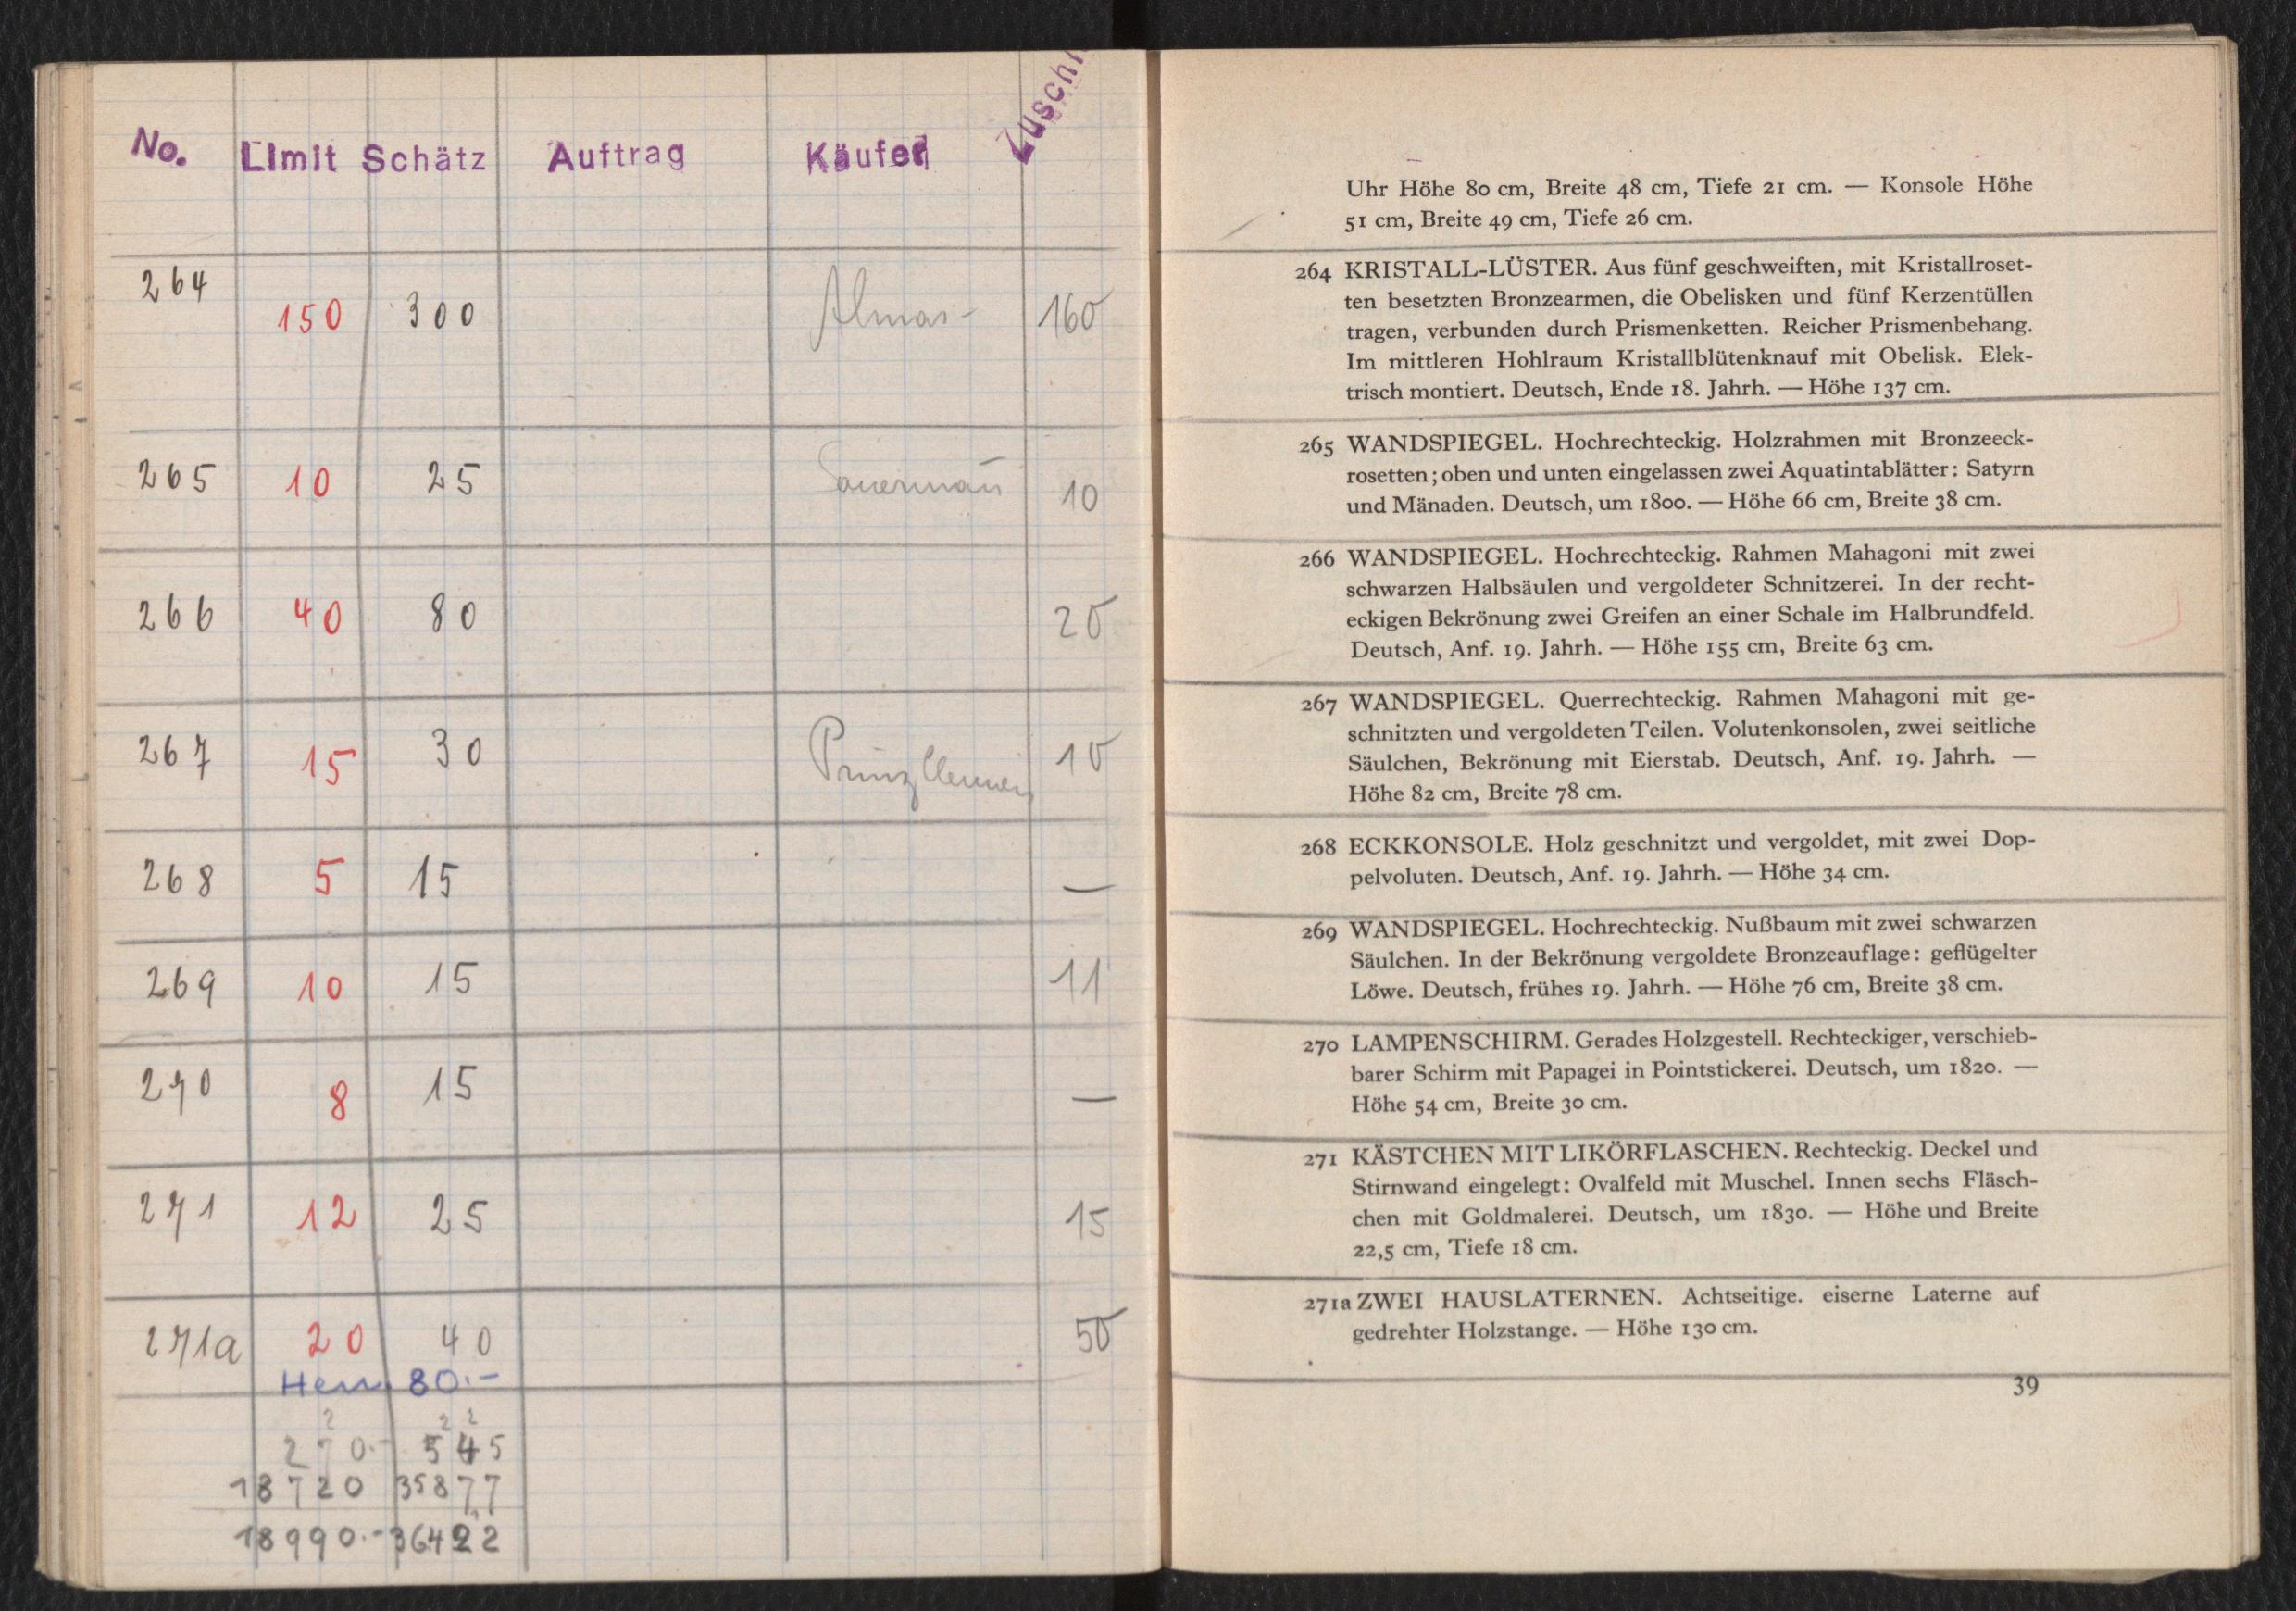 No. Limit Schätz Auftrag Käufer Zuschl
264 150 300 Almas 160
265 10 25 10
266 40 80 20
267 15 30 Prinz Clemens 10
268 5 15 —
269 10 15 11
270 8 15 —
271 12 25 15
271a 20 40 50
80.-
2 2 2
270.- 545
18720 35877
18990.- 36422
Uhr Höhe 80 cm, Breite 48 cm, Tiefe 21 cm. — Konsole Höhe
51 cm, Breite 49 cm, Tiefe 26 cm.
264 KRISTALL-LÜSTER. Aus fünf geschweiften, mit Kristallroset-
ten besetzten Bronzearmen, die Obelisken und fünf Kerzentüllen
tragen, verbunden durch Prismenketten. Reicher Prismenbehang.
Im mittleren Hohlraum Kristallblütenknauf mit Obelisk. Elek-
trisch montiert. Deutsch, Ende 18. Jahrh. — Höhe 137 cm.
265 WANDSPIEGEL. Hochrechteckig. Holzrahmen mit Bronzeeck-
rosetten; oben und unten eingelassen zwei Aquatintablätter: Satyrn
und Mänaden. Deutsch, um 1800. — Höhe 66 cm, Breite 38 cm.
266 WANDSPIEGEL. Hochrechteckig. Rahmen Mahagoni mit zwei
schwarzen Halbsäulen und vergoldeter Schnitzerei. In der recht-
eckigen Bekrönung zwei Greifen an einer Schale im Halbrundfeld.
Deutsch, Anf. 19. Jahrh. — Höhe 155 cm, Breite 63 cm.
267 WANDSPIEGEL. Querrechteckig. Rahmen Mahagoni mit ge-
schnitzten und vergoldeten Teilen. Volutenkonsolen, zwei seitliche
Säulchen, Bekrönung mit Eierstab. Deutsch, Anf. 19. Jahrh. —
Höhe 82 cm, Breite 78 cm.
268 ECKKONSOLE. Holz geschnitzt und vergoldet, mit zwei Dop-
pelvoluten. Deutsch, Anf. 19. Jahrh. — Höhe 34 cm.
269 WANDSPIEGEL. Hochrechteckig. Nußbaum mit zwei schwarzen
Säulchen. In der Bekrönung vergoldete Bronzeauflage: geflügelter
Löwe. Deutsch, frühes 19. Jahrh. — Höhe 76 cm, Breite 38 cm.
270 LAMPENSCHIRM. Gerades Holzgestell. Rechteckiger, verschieb-
barer Schirm mit Papagei in Pointstickerei. Deutsch, um 1820. —
Höhe 54 cm, Breite 30 cm.
271 KÄSTCHEN MIT LIKÖRFLASCHEN. Rechteckig. Deckel und
Stirnwand eingelegt: Ovalfeld mit Muschel. Innen sechs Fläsch-
chen mit Goldmalerei. Deutsch, um 1830. — Höhe und Breite
22,5 cm, Tiefe 18 cm.
271a ZWEI HAUSLATERNEN. Achtseitige. eiserne Laterne auf
gedrehter Holzstange. — Höhe 130 cm.
39